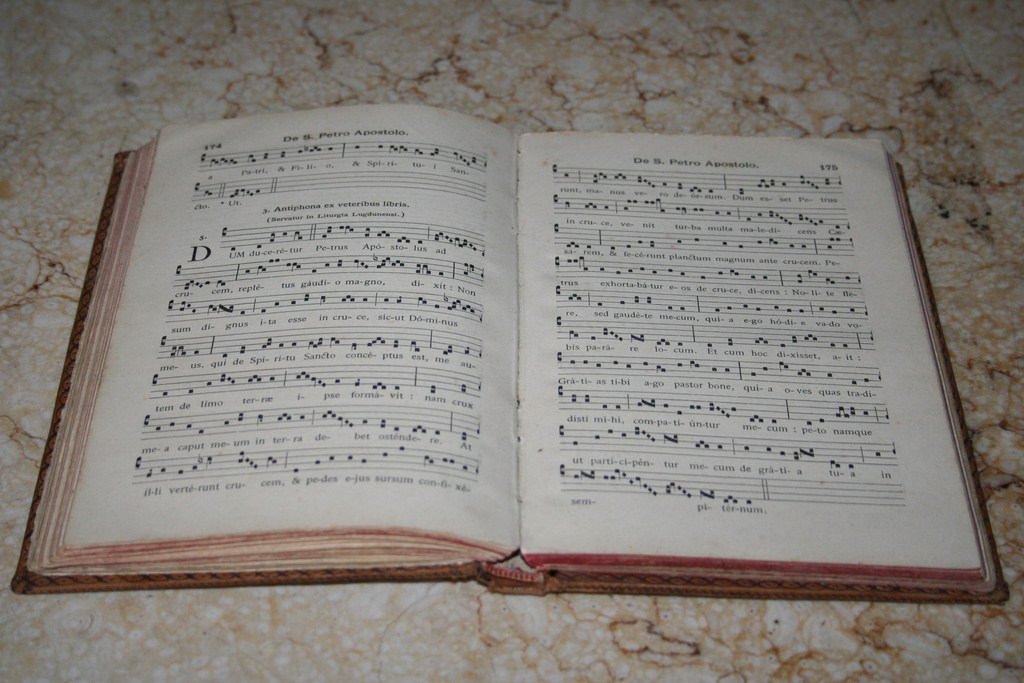 174
De S. Petro Apostolo.
a Patri, & Fi-li-o, & Spi-ri-tu-i San-
cto. * Ut.
3. Antiphona ex veteribus libris,
(Servatur in Liturgia Lugdunensi.)
5.
DUM du-ce-ré-tur Pe-trus Apó-sto-lus ad
cru-cem, replé-tus gáudi-o ma-gno, di-xit : Non
sum di-gnus i-ta esse in cru-ce, sic-ut Dó-mi-nus
me-us, qui de Spi-ri-tu Sancto concé-ptus est, me au-
tem de limo ter-ræ i-pse formá-vit : nam crux
me-a caput me-um in ter-ra de-bet osténde-re. At
il-li verté-runt cru-cem, & pe-des e-jus sursum con-fi-xé-
De S. Petro Apostolo.
175
runt, ma-nus ve-ro de-ór-sum. Dum es-set Pe-trus
in cru-ce, ve-nit tur-ba multa ma-le-di-cens Cæ-
sa-rem, & fe-cé-runt planctum magnum ante cru-cem. Pe-
trus exhorta-bá-tur e-os de cru-ce, di-cens : No-li-te fle-
re, sed gaudé-te me-cum, qui-a e-go hó-di-e va-do vo-
bis pa-rá-re lo-cum. Et cum hoc di-xisset, a-it :
Grá-ti-as ti-bi a-go pastor bone, qui-a o-ves quas tra-di-
disti mi-hi, com-pa-ti-ún-tur me-cum : pe-to namque
ut parti-ci-pén-tur me-cum de grá-ti-a tu-a in
sem-pi-térnum.